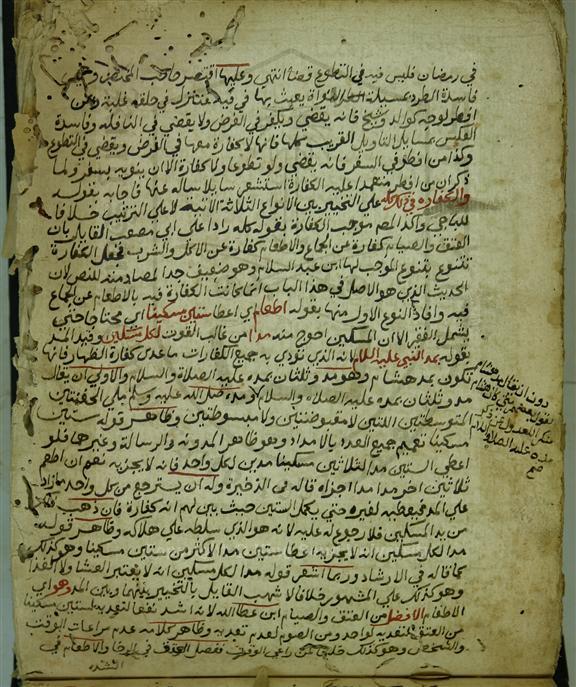 في رمضان فليس فيه في التطوع قضا انتهى وعليها اقتصر صاحب المختصر
فاسدة الطرد بمسيلة النواة يعبث بها في فيه فتنزل في حلقه غلبة وبمن
افطر لوجه كوالد وشيخ فانه يقضي ويكفر في الفرض ولا يقضي في النافلة وفاسدة
العكس بمسايل التاويل القريب كلها فانها لا كفارة معها في الفرض ويقضي في التطوع
وكذا من افطر في السفر فانه يقضي ولو تطوعا ولا كفارة الا ان ينويه بسفر ولما
ذكر ان من افطر متعمدا عليه الكفارة استشعر سايلا ساله عنها فاجابه بقوله
والكفارة في ذلك على التخيير بين الانواع الثلاثة الاتية لا على الترتيب خلافا
للباجي واكد المص موجب الكفارة بقوله كله رادا على ابي مصعب القايل بان
العتق والصيام كفارة عن الجماع والاطعام كفارة عن الاكل والشرب فجعل الكفارة
تتنوع بتنوع الموجب لها ابن عبد السلام وهو ضعيف جدا لمصادمته للنص لان
الحديث الذي هو الاصل في هذا الباب انما كانت الكفارة فيه بالاطعام عن الجماع
فيه وافاد النوع الاول منها بقوله اطعام اي اعطا ستين مسكينا اي محتاجا حتى
يشمل الفقير الا ان المسكين احوج منه مدا من غالب القوت لكل مسكين وقيد المد
بقوله بمد النبي عليه السلام لانه الذي تؤدى به جميع الكفارات ما عدى كفارة الظهار فانها
تكون بمد هشام وهو مد وثلثان بمده عليه الصلاة والسلام والاولى ان يقال
مد وثلثان بمده عليه الصلاة والسلام ومده صلى الله عليه وسلم ملي الحفنتين
المتوسطتين اللتين لا مقبوضتين ولا مبسوطتين وظاهر قوله ستين
مسكينا تعميم جميع العدد بالامداد وهو ظاهر المدونة والرسالة وغيرها فلو
اعطى الستين مدا لثلاثين مسكينا مدين لكل واحد فانه لا يجزيه نعم ان اطعم
ثلاثين اخر مدا مدا اجزاه قاله في الذخيرة وله ان يسترجع من كل واحد ما زاد
على المد فيعطيه لغيره حتى يكمل الستين حيث بين لهم انه كفارة فان ذهب
من يد المسكين فلا رجوع له عليه لانه هو الذي سلطه على هلاكه وظاهر قوله
مدا لكل مسكين انه لا يجزيه اعطا ستين مدا لاكثر من ستين مسكينا وهو كذلك
كما قاله في الارشاد وربما اشعر قوله مدا لكل مسكين انه لا يعتبر العشا ولا الغدا
وهو كذلك على المشهور خلافا لاشهب القايل بالتخيير بينهما وبين المد وهو اي
الاطعام الافضل من العتق والصيام ابن عطا الله لانه اشد نفعا لتعديه لستين مسكينا
من العتق لتعديه لواحد ومن الصوم لعدم تعديه وظاهر كلامه عدم مراعات الوقت
والشخص وهو كذلك خلافا لمن راعى الوقت ففضل العتق في الرخا والاطعام في
الشدة